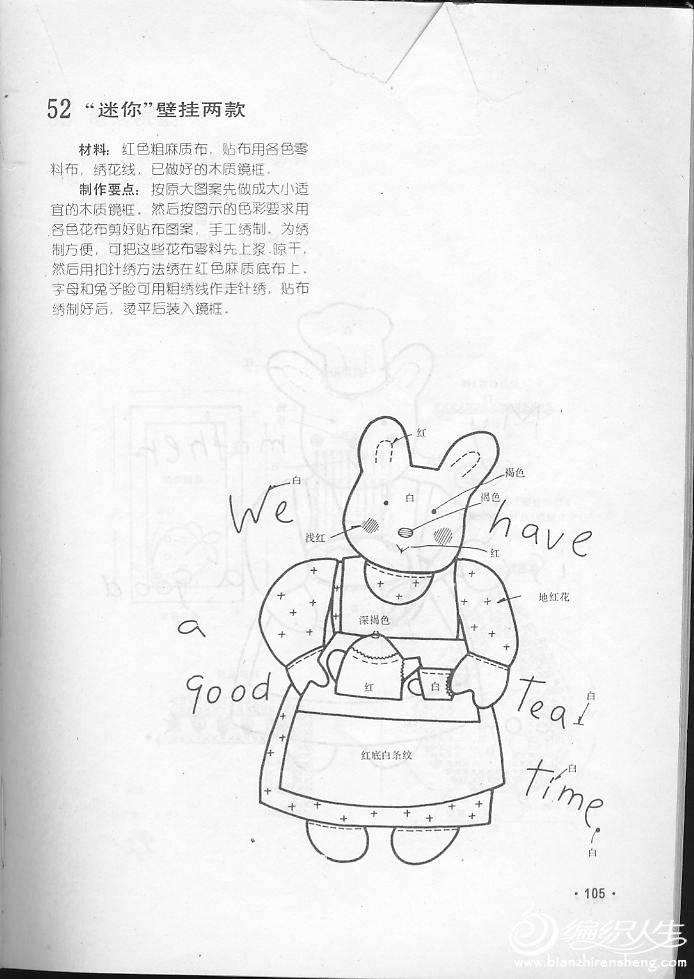 52 “迷你”壁挂两款
材料：红色粗麻质布，贴布用各色零
料布，绣花线，已做好的木质镜框。
制作要点：按原大图案先做成大小适
宜的木质镜框。然后按图示的色彩要求用
各色花布剪好贴布图案，手工绣制。为绣
制方便，可把这些花布零料先上浆、晾干，
然后用扣针绣方法绣在红色麻质底布上。
字母和兔子脸可用粗绣线作走针绣，贴布
绣制好后，烫平后装入镜框。
红
白
We
白
褐色
褐色
have
浅红
红
地红花
a
深褐色
good
红
白
Tea
白
红底白条纹
time
白
白
·105·
编织人生
www.bianzhirensheng.com